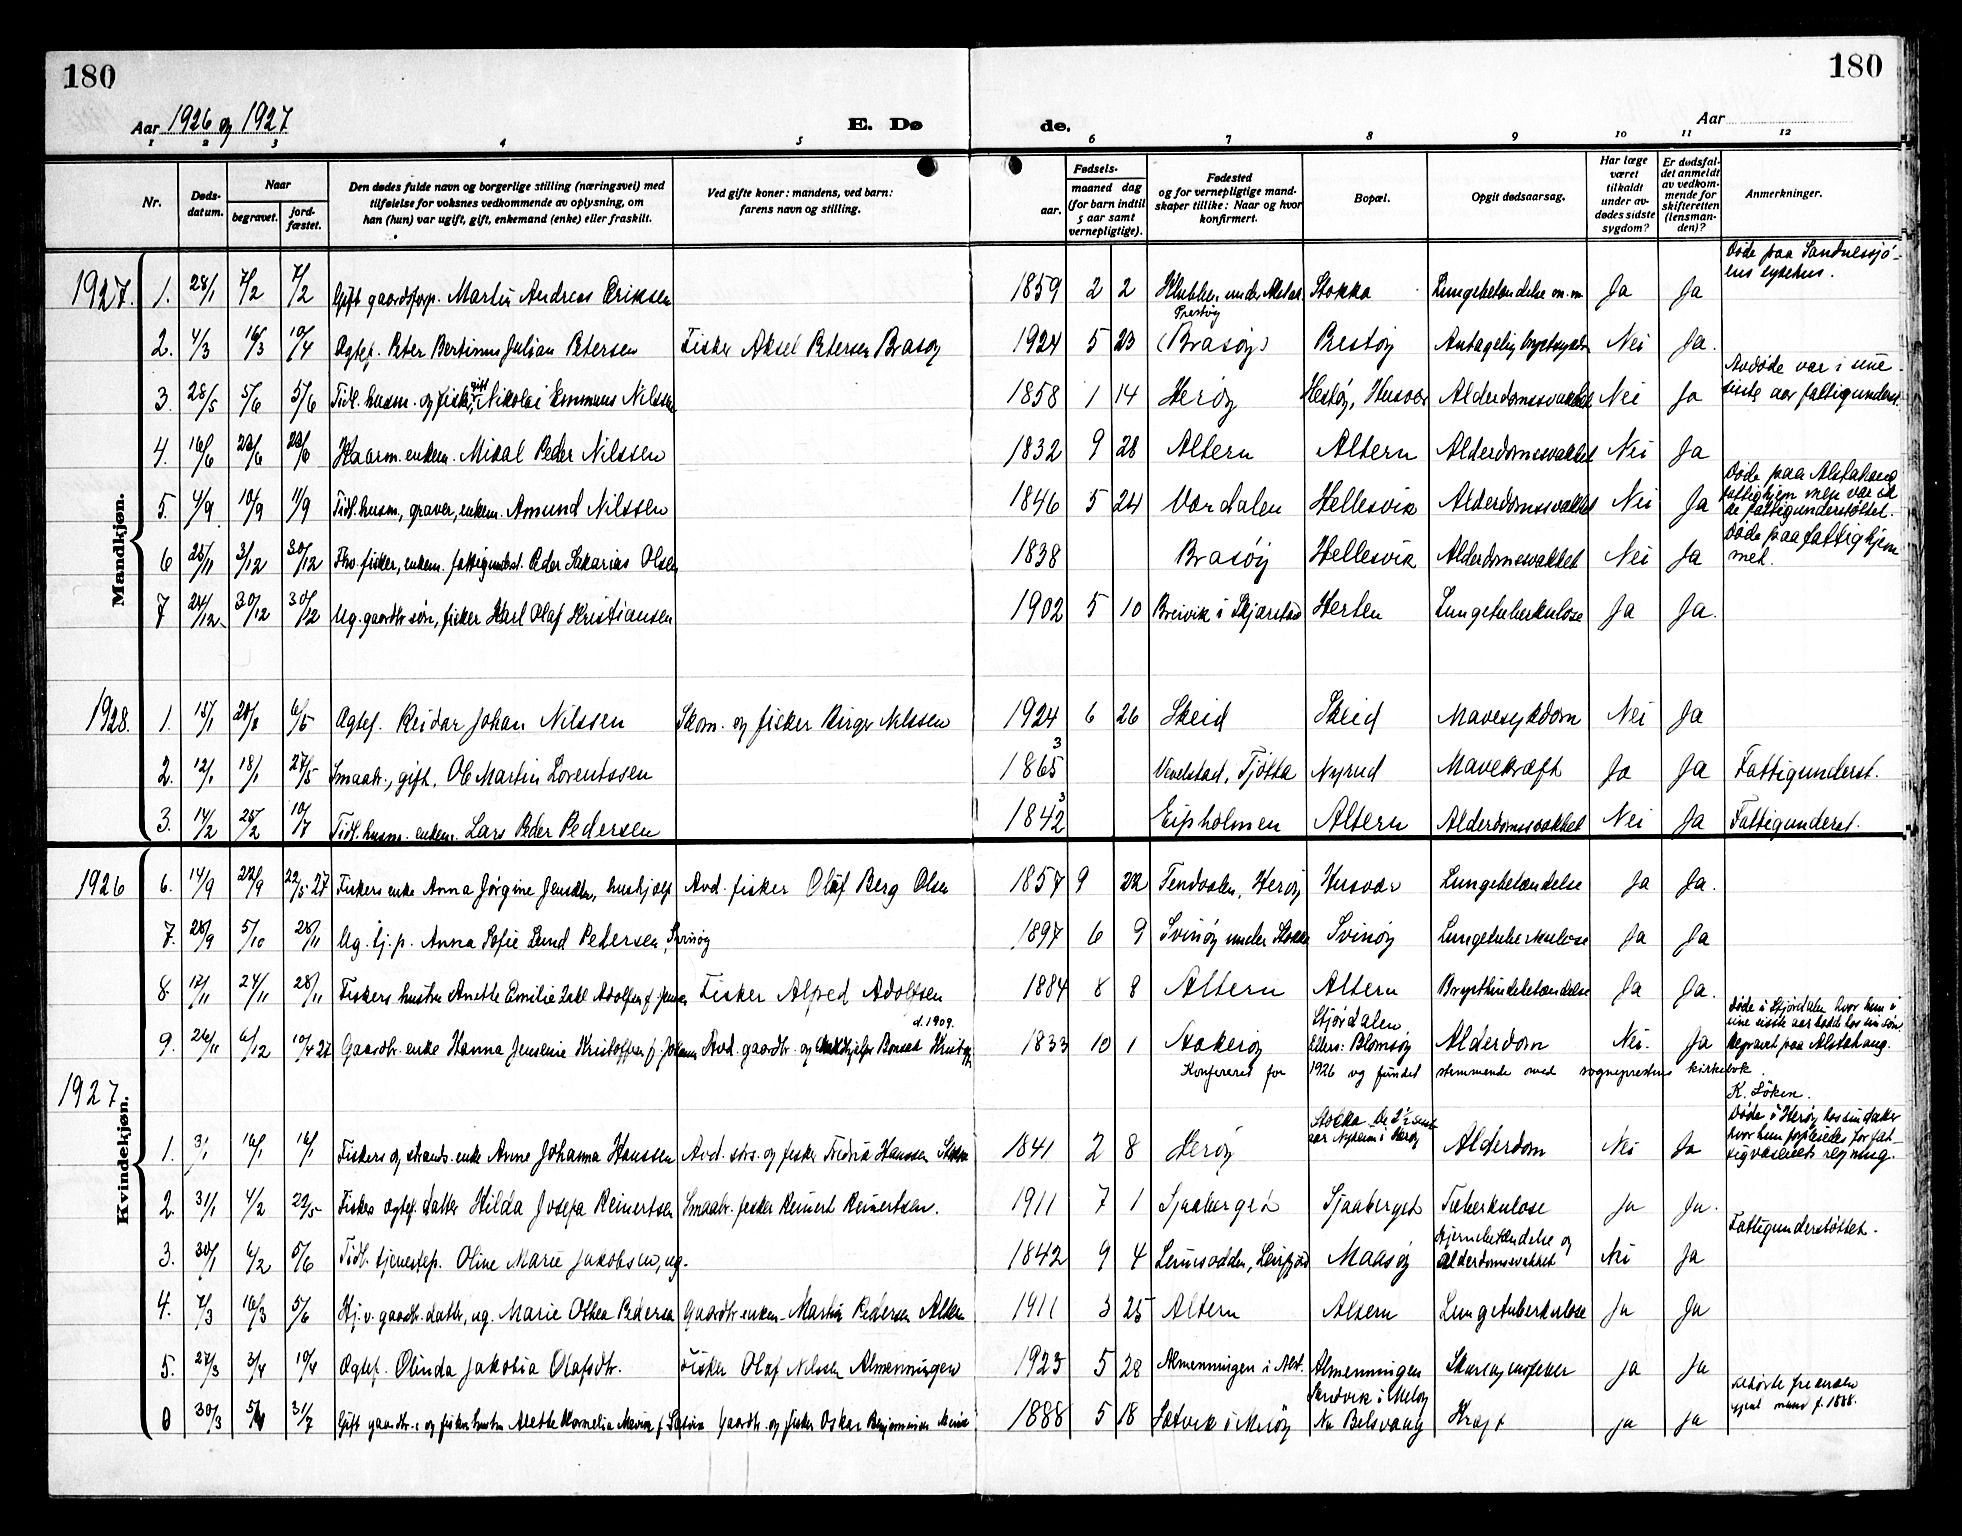 180
180
Aar 1926 og 1927
E. Dø de.
Aar
1 2 3 4 5 6 7 8 9 10 11 12
Nr.
Døds-datum.
Naar
begravet.
jord-fæstet.
Den dødes fulde navn og borgerlige stilling (næringsvei) med
tilføielse for voksnes vedkommende av oplysning, om
han (hun) var ugift, gift, enkemand (enke) eller fraskilt.
Ved gifte koner: mandens, ved barn:
farens navn og stilling.
Fødsels-
aar.
maaned dag
(for barn indtil
5 aar samt
vernepligtige).
Fødested
og for vernepligtige mand-
skaper tillike: Naar og hvor
konfirmert.
Bopæl.
Opgit dødsaarsag.
Har læge
været
tilkaldt
under av-
dødes sidste
sygdom?
Er dødsfal-
det anmeldt
av vedkom-
mende for
skifteretten
(lensman-
den)?
Anmerkninger.
Mandkjøn.
1927. 1. 28/1 7/2 7/2 Gift gaardsforp. Martin Andreas Eriksen 1859 2 2 under Alstah. Stokka Lungebetændelse m.m Ja Ja Døde paa Sandnessjøens sykehus.
2. 4/3 16/3 10/4 Ægtef. Peter Bertinus Julian Petersen Fisker Aksel Petersen Brasøy 1924 5 23 Prestøy (Brasøy) Prestøy Antagelig brystsykdom Nei Ja.
3. 28/5 5/6 5/6 Tidl. husm. og fisker, gift Nikolai Nilssen 1858 1 14 Herøy Hestøy, Husvær Alderdomssvakhet Nei Ja Avdøde var i sine siste aar fattigunderst.
4. 16/6 23/6 23/6 Kaarm. enkem. Mikal Peder Nilssen 1832 9 28 Altern Altern Alderdomssvakhet Nei Ja
5. 4/9 10/9 11/9 Tidl. husm., graver, enkem. Amund Nilssen 1846 5 24 Værdalen Hellesvik Alderdomssvakhet Nei Ja Døde paa Alstahaug fattighjem men var ikke fattigunderstøttet.
6 25/11 3/12 30/12 Fhv. fisker, enkem. fattigunderst. Peder Sakarias Olsen 1838 Brasøy Hellesvik Alderdomssvakhet Nei Ja Døde paa fattighjemmet.
7 24/12 30/12 30/12 Ug. gaardbr. søn, fisker Karl Olaf Kristiansen 1902 5 10 Breivik i Skjærstad Herlen Lungetuberkulose Ja Ja.
1928. 1. 15/1 6/5 Ægtef. Reidar Johan Nilssen Skom. og fisker Birger Nilssen 1924 6 26 Skeid Skeid Mavesykdom Nei Ja
2. 12/1 18/1 27/5 Smaabr., gift. Ole Martin Lorentssen 1865 3 Vevelstad, Tjøtta Nyrud Mavekræft Ja Ja Fattigunderst.
3. 14/2 25/2 10/7 Tidl. husm. enkem. Lars Peder Pedersen 1842 3 Eipholmen Altern Alderdomssvakhet Nei Ja Fattigunderst.
Kvindekjøn.
1926 6. 14/9 22/9 22/5 27 Fiskers enke Anna Jørgine Jensdtr., hushjælp Avd. fisker Olaf Berg Olsen 1857 9 22 Tenvalen, Herøy Husvær Lungebetændelse Ja Ja.
7. 28/9 5/10 28/11 Ug. tj. p. Anna Sofie Lund Petersen, Svinøy 1897 6 9 Svinøy under Stokka Svinøy Lungetuberkulose Ja Ja
8 17/11 24/11 28/11 Fiskers hustru Anette Emilie Adolfsen f. Jensen Fisker Alfred Adolfsen 1884 8 8 Altern Altern Brysthindebetændelse Ja Ja.
9. 26/11 6/12 10/4 27 Gaardbr. enke Hanna Jensenie Kristoffersen f. Johans. Avd. gaardbr. og kirkehjelper Bonsak Kristoffs. d. 1909. 1833 10 1 Aakerøy Stjørdalen Ellers: Blomsøy Alderdom Nei. Ja Døde i Stjørdalen hvor hun i sine siste aar hadde hos sin søn. Begravet paa Alstahaug.
Konfereret for 1926 og fundet stemmende med sogneprestens kirkebok.
K. Løken.
1927 1. 3/1 16/1 16/1 Fiskers og strands. enke Anne Johanna Hanssen Avd. strs. og fisker Fredrik Hanssen Stokka 1841 2 8 Herøy Stokka De 2 1/2 siste aar Nyheim i Herøy Alderdom Nei Ja Døde i Herøy hos sin datter hvor hun forpleiedes for fattigvæsenets regning.
2. 31/1 4/2 22/5 Fiskers ægtef. datter Hilda Josefa Reinertsen Smaabr. fisker Reinert Reinertsen. 1911 7 1 Sjaaberget Sjaaberget Tuberkulose Ja Ja.
3. 30/1 6/2 5/6 Tidl. tjenestep. Oline Marie Jakobsen, ug. 1842 9 4 Leinesodden, Leirfjord Maasøy Hjernebetændelse og alderdomssvakhet Nei Ja Fattigunderstøttet.
4. 7/3 16/3 5/6 Hj.v. gaardbr. datter, ug. Marie Othea Pedersen Gaardbr. enkem. Martin Pedersen Altern 1911 3 25 Altern Altern Lungetuberkulose Ja Ja
5. 27/3 3/4 10/4 Ægtef. Olinda Jakobia Olafsdtr. Fisker Olaf Nilssen Almenningen 1925 5 28 Almenningen i Alst. Almenningen Skarlagensfeber Ja Ja
30/3 31/7 Gift gaardbr.s og fiskers hustru Anette Kornelia Gaardbr. og fisker Oskar Benjaminsen 1888 5 18 i Herøy Sandvik i Meløy Kræft Ja Ja